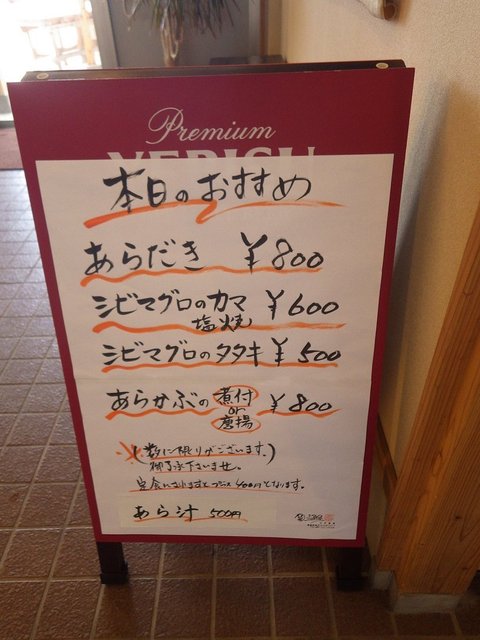 Premium
YEBISU
本日のおすすめ
あらだき ¥800
シビマグロのカマ ¥600
塩焼
シビマグロのタタキ ¥500
あらかぶの 煮付 or 唐揚 ¥800
※(数に限りがございます。)
御了承下さいませ。
定食になりますとプラス400円となります。
あら汁 500円